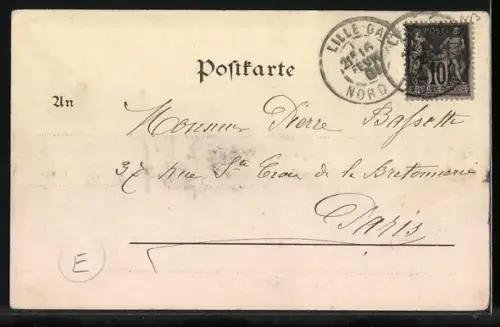 Postkarte
An
LILLE-GARE
16
FEVR
NORD
POSTE
10
Monsieur Pierre Bassett
37 Rue Ste Croix de la Bretonnerie
Paris
E